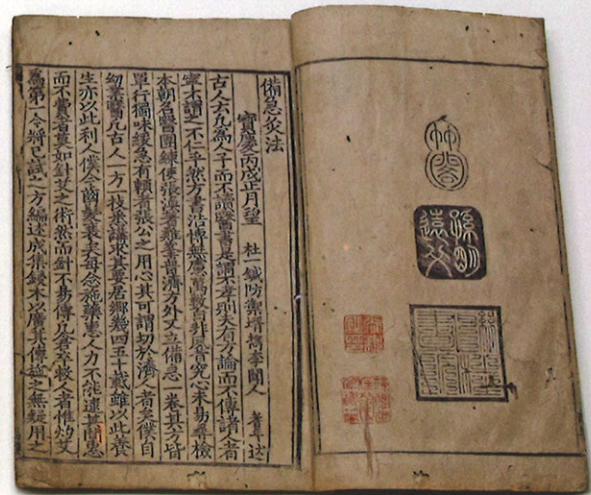 備急灸法
寶慶丙戌正月望 杜一鍼防禦壻攜李聞人 耆年 述
古人云凡為人子而不讀醫書是謂不孝則夫有方論而不傳諸人者
寧不謂之不仁乎然方書浩博無慮萬數自非夙昔究心未易尋檢
本朝名醫團練使張渙著雞峯普濟方外又立備急一卷其方皆
單行獨味緩急有賴者張公之用心其可謂切於濟人者矣僕自
幼業醫凡古人一方一技悉講求其要居鄉幾四五十載雖以此養
生亦以此利人僕今齒髮衰矣每念施藥惠人力不能其間惠
而不費者莫如針艾之術然而針不易傳凡倉卒救人者惟灼艾
為第一今將已試之方編述成集鋟木以廣其傳之無疑用之
孫明
遠父